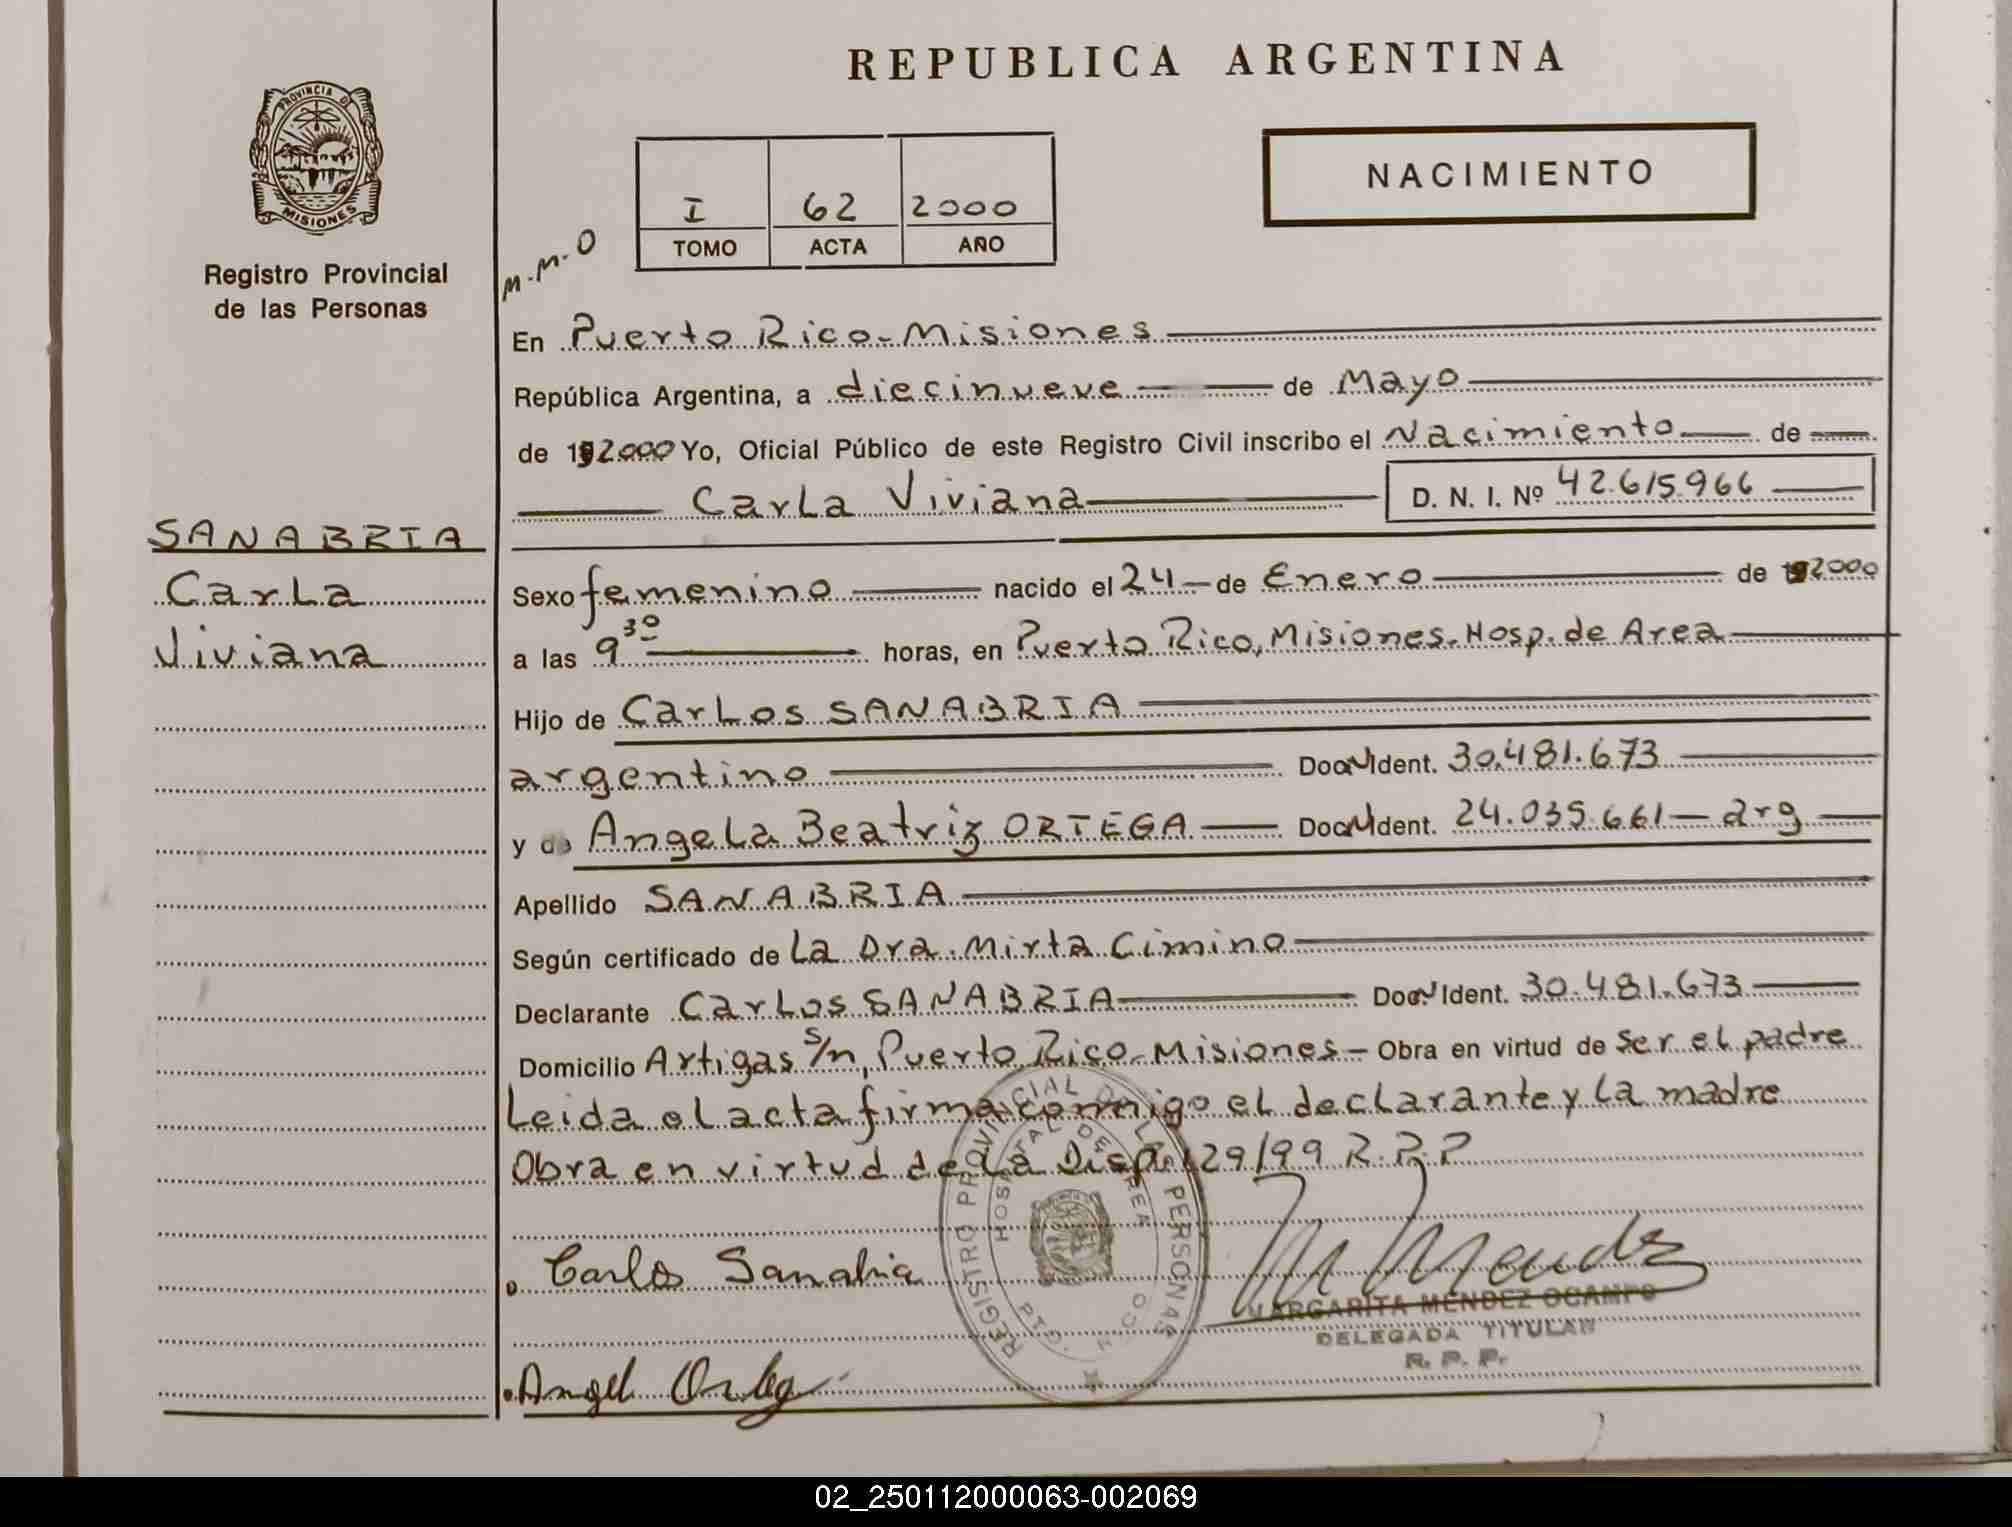 REPUBLICA ARGENTINA
PROVINCIA DE
MISIONES
Registro Provincial
de las Personas
I 62 2000
TOMO ACTA AÑO
NACIMIENTO
M.M.O
En Puerto Rico-Misiones
República Argentina, a diecinueve de Mayo
de 192000 Yo, Oficial Público de este Registro Civil inscribo el Nacimiento de
Carla Viviana D. N. I. Nº 42.615.966
SANABRIA
Carla
Viviana
Sexo femenino nacido el 24 de Enero de 192000
a las 9 30 horas, en Puerto Rico, Misiones. Hosp. de Area
Hijo de Carlos SANABRIA
argentino Doc. N Ident. 30.481.673
y de Angela Beatriz ORTEGA Doc. N Ident. 24.035.661 - arg
Apellido SANABRIA
Según certificado de La Dra. Mirta Cimino
Declarante Carlos SANABRIA Doc. N Ident. 30.481.673
Domicilio Artigas s/n, Puerto Rico-Misiones - Obra en virtud de ser el padre
Leida el acta firma conmigo el declarante y la madre
Obra en virtud de la Disp. 129/99 R.P.P
REGISTRO PROVINCIAL DE LAS PERSONAS
HOSPITAL DE AREA
Carlos Sanabria
M Mendez
MARGARITA MENDEZ OCAMPO
DELEGADA TITULAR
R. P. P.
Angel Ortega
02_250112000063-002069